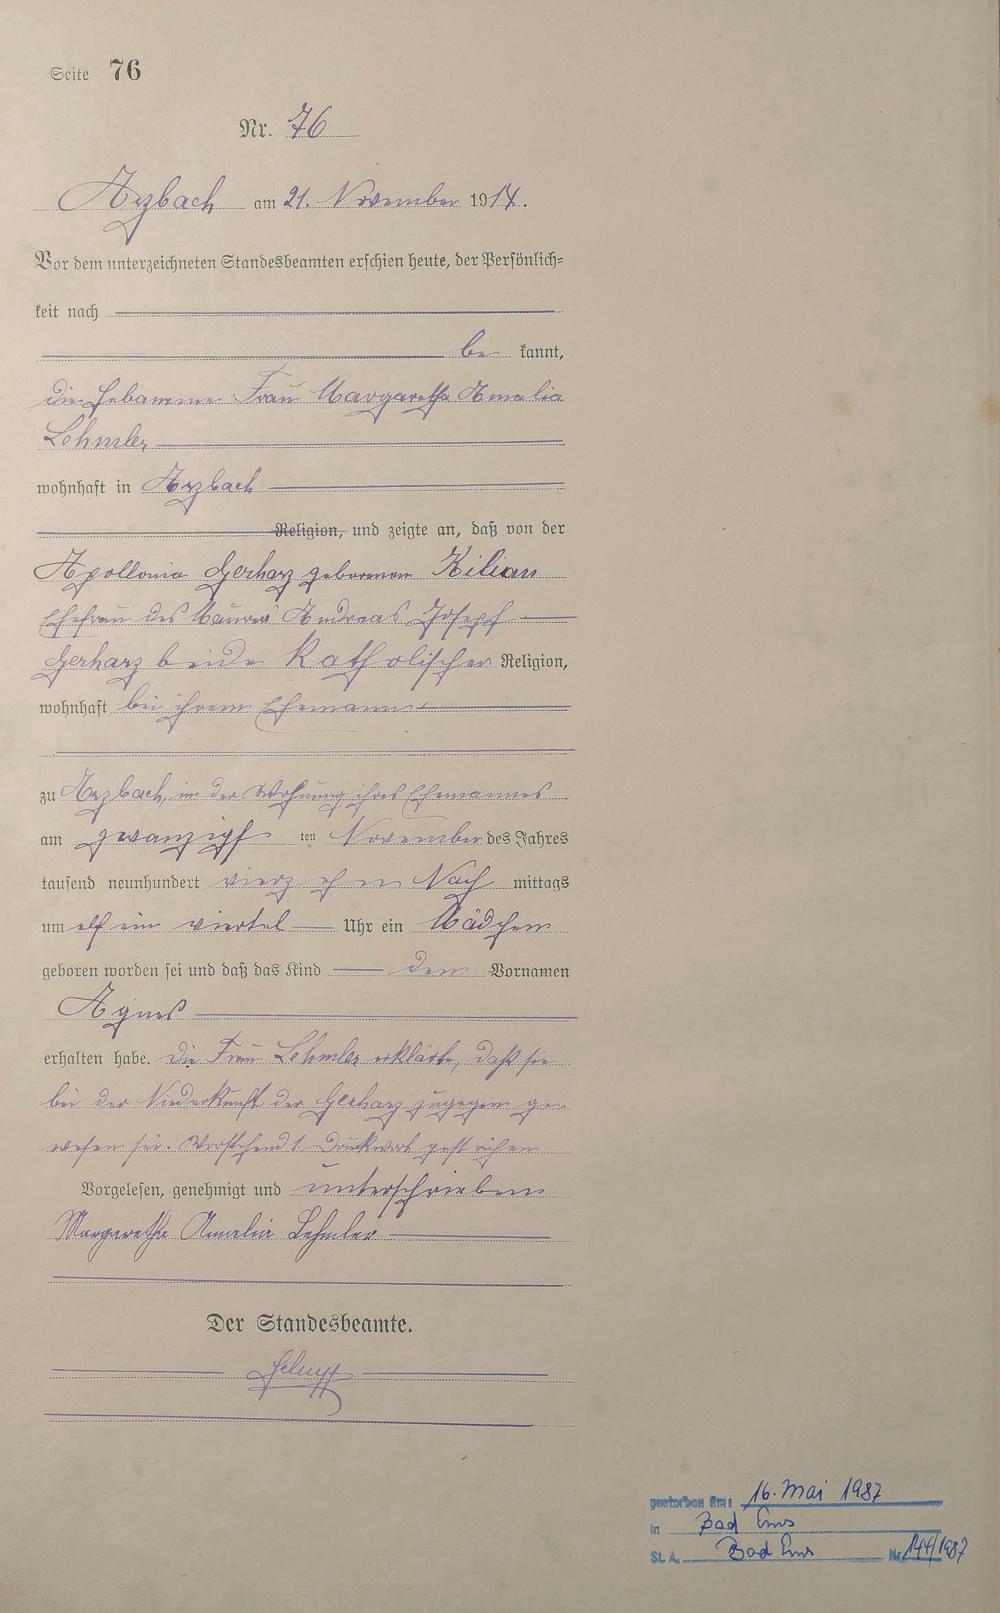 Seite 76
Nr. 76
Arzbach am 21. November 1914.
Vor dem unterzeichneten Standesbeamten erschien heute, der Persönlich=
keit nach
be kannt,
die Hebamme Frau Margaretha Amalia
Lehmler
wohnhaft in Arzbach
Religion, und zeigte an, daß von der
Apollonia Gerharz geborenen Kilian
Ehefrau des Maurers Andreas Josepf
Gerharz beide Katholischer Religion,
wohnhaft bei ihrem Ehemann
zu Arzbach, in der Wohnung ihres Ehemannes
am zwanzigst ten November des Jahres
tausend neunhundert vierzehn Nach mittags
um elf ein viertel Uhr ein Mädchen
geboren worden sei und daß das Kind den Vornamen
Agnes
erhalten habe. Die Frau Lehmler erklärte, daß sie
bei der Niederkunft der Gerharz zugegen ge-
wesen sei. Vorstehend 1 Druckwort gestrichen
Vorgelesen, genehmigt und unterschrieben
Margaretha Amalia Lehmler
Der Standesbeamte.
gestorben am: 16. Mai 1987
in Bad Ems
St. A. Bad Ems Nr. 144/1987